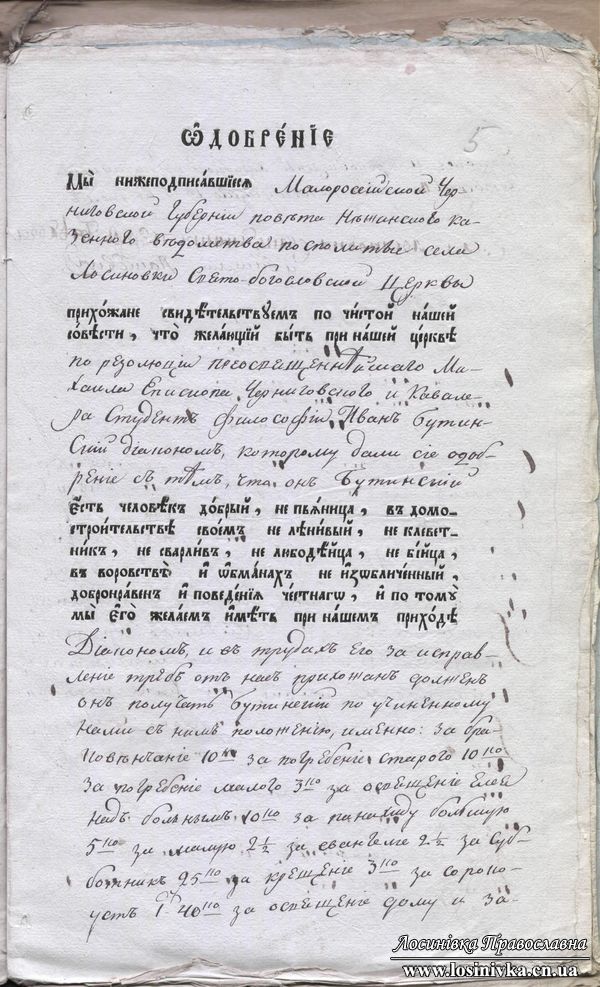 5
Ѡ҆ДОБРЕ́НЇЕ
Мы̀ нижеподписа́вшїеся Малоросейской Чер-
ниговской Губерніи повѣта Нѣжинского ка-
зенного вѣдомства посполитые села
Лосиновки Свято-богословской Церквы
прихо́жане свидѣ́тельствуемъ по чи́стой на́шей
со́вѣсти, что̀ жела́ющїй бы́ть при на́шей це́рквѣ
по резолюціи преосвященнѣйшаго Ми-
хаила Епископа Черниговского и Кавале-
ра Студентъ философіи Иванъ Бутин-
скій діакономъ, которому дали сіе одоб-
реніе въ томъ, что онъ Бутинскій
є҆́сть человѣ́къ до́брый, не пья́ница, въ домо-
строи́тельствѣ свое́мъ не лѣни́вый, не клевет-
ни́къ, не сварли́въ, не любодѣ́йца, не бі́йца,
въ воровствѣ̀ и҆ ѡ҆бма́нахъ не и҆зѡбличе́нный,
добронра́венъ и҆ поведе́нїя че́стнагѡ, и҆ по тому̀
мы̀ є҆го̀ жела́емъ и҆мѣ́ть при на́шемъ прихо́дѣ
Діакономъ, и въ трудахъ Его за исправ-
леніе требъ отъ насъ прихожанъ долженъ
онъ получать Бутинскій по учиненному
нами съ нимъ положенію, именно: за бра-
ковѣнчаніе 10 ко за погребеніе старого 10 ко
за погребеніе малого 3 ко за освященіе Елея
надъ больнымъ 10 ко за панахиду большую
5 ко за малую 2½ за евангеліе 2½ за суб-
ботникъ 25 ко за крещеніе 3 ко за сороко-
устъ 1 р 40 ко за освященіе дому и за-
Лосинівка Православна
www.losinivka.cn.ua